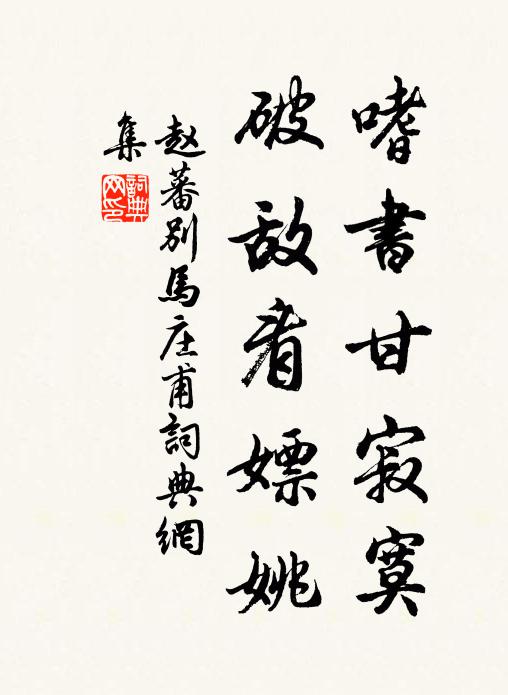 嗜書甘寂寞
破敌看嫖姚
赵蕃别馬庄甫詞典網
集
詞典网印